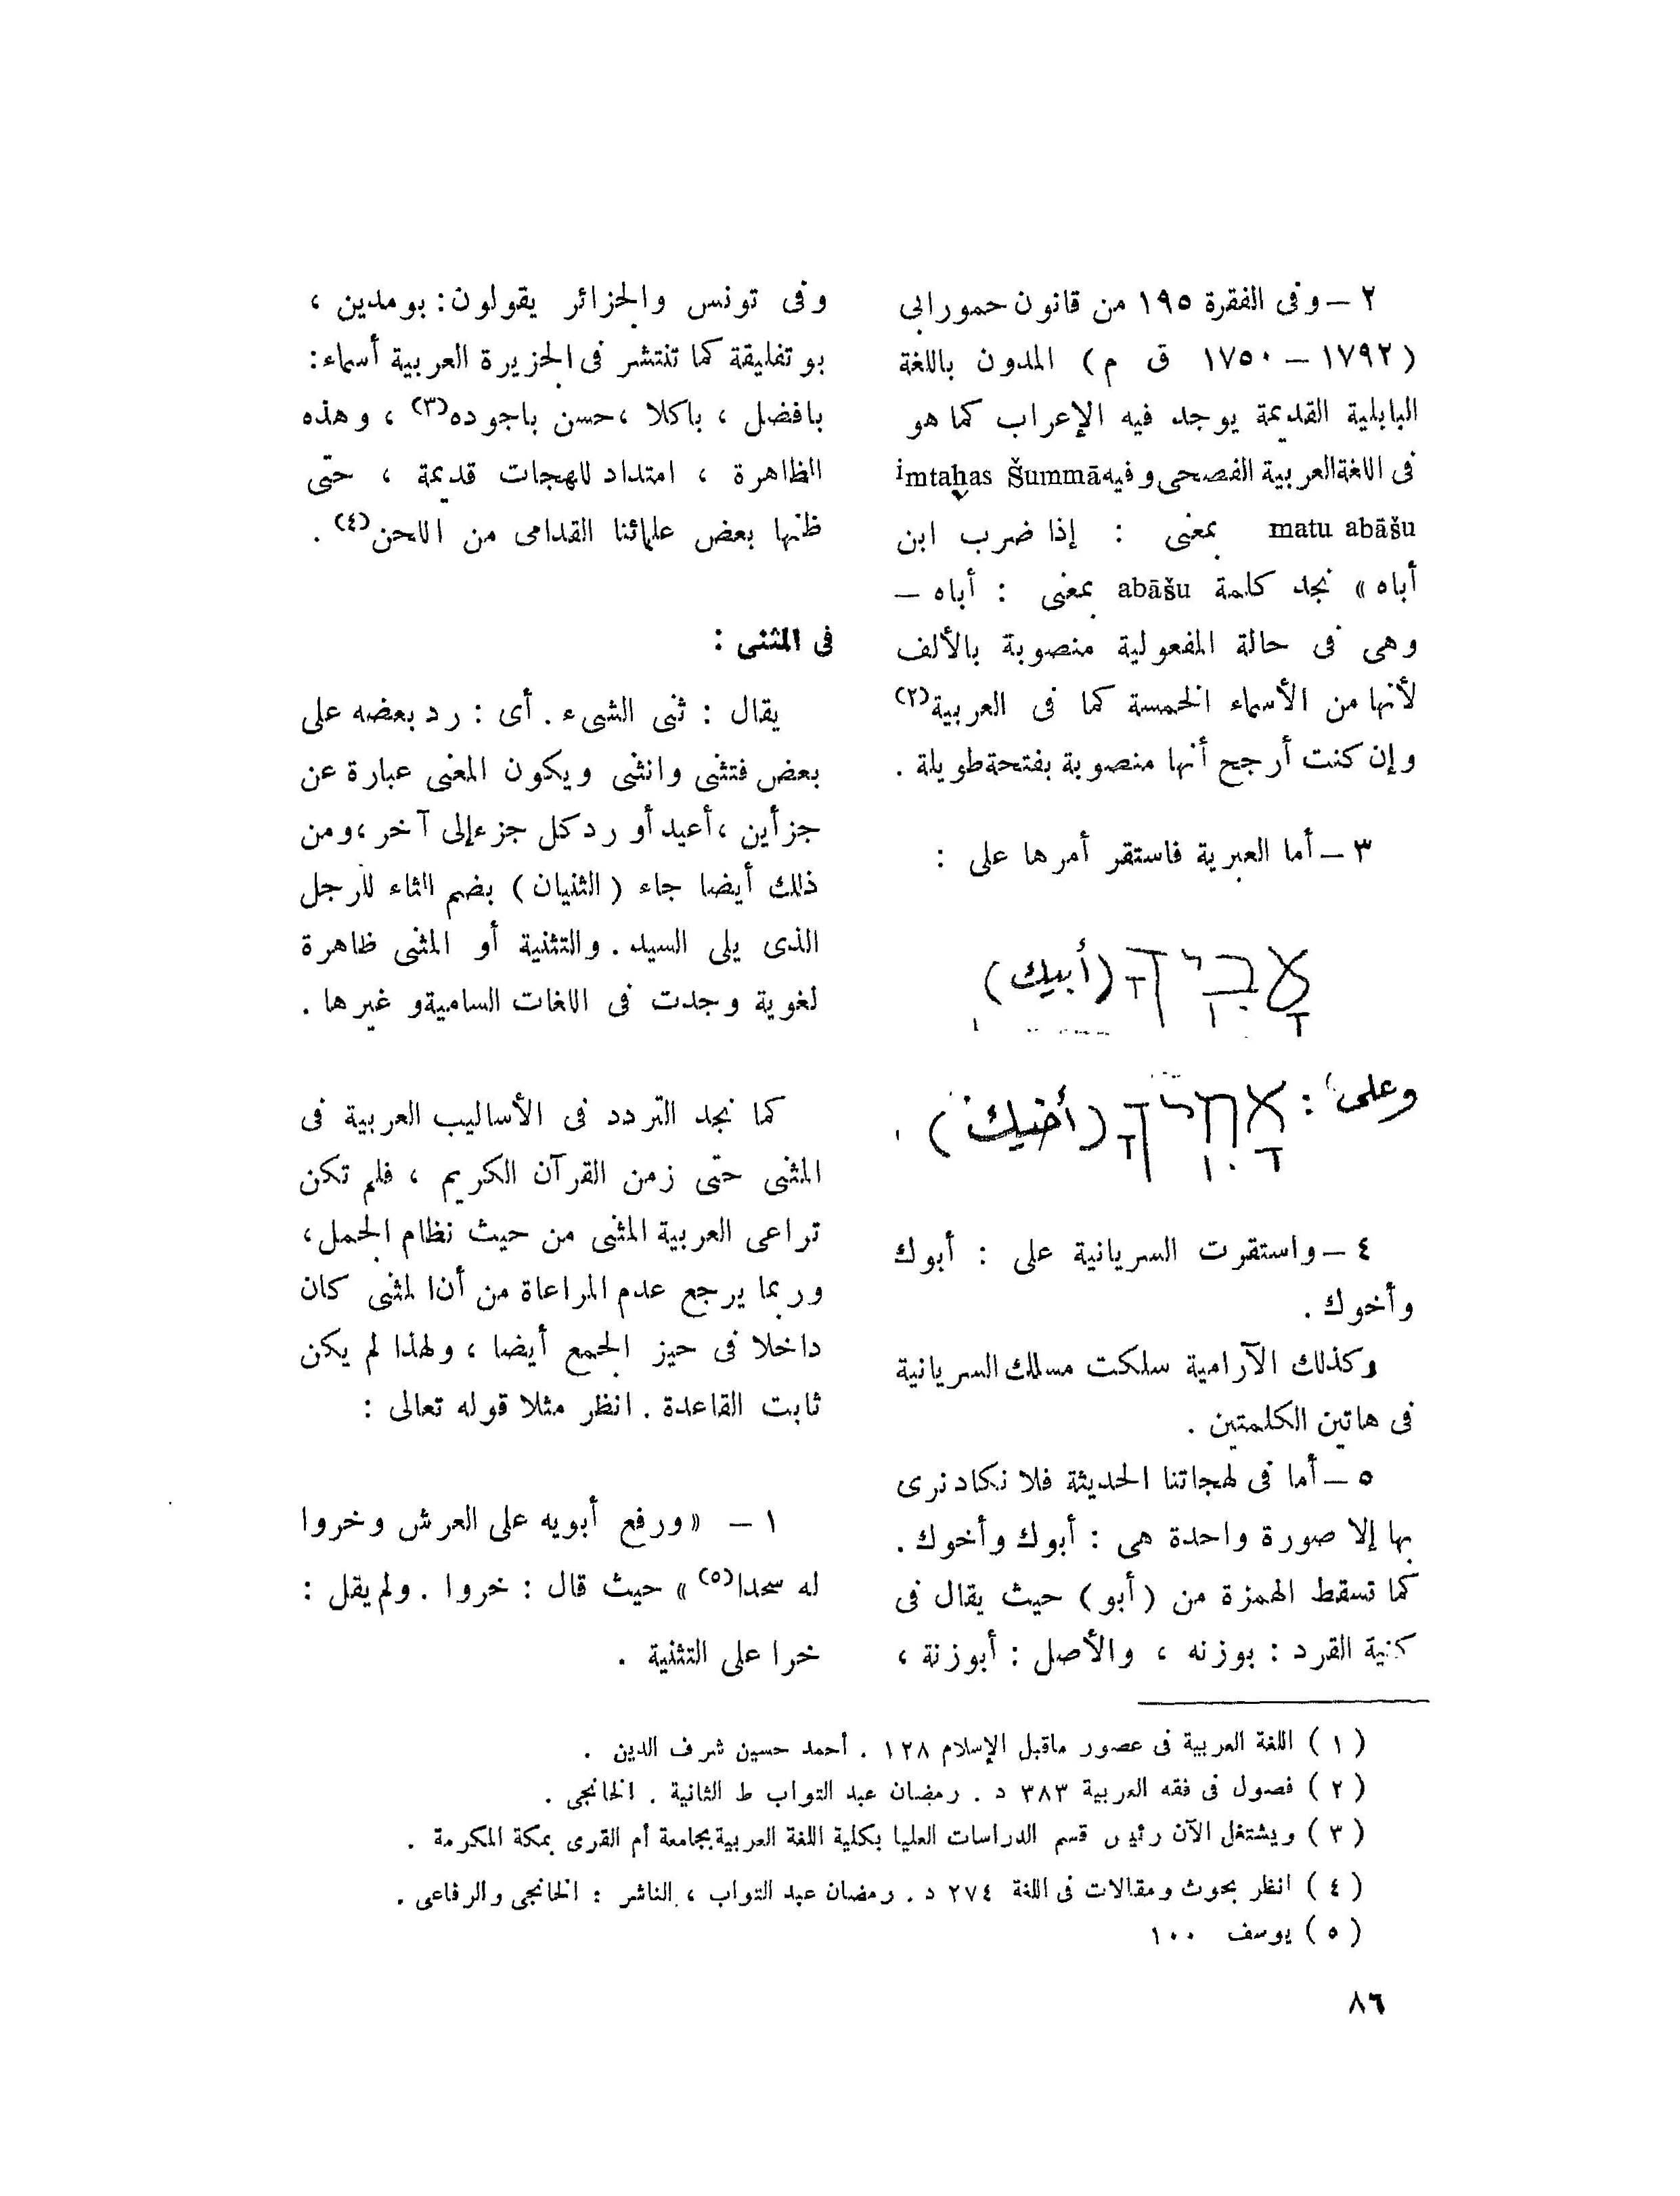 ٢ – وفى الفقرة ١٩٥ من قانون حمورابى
(١٧٩٢ – ١٧٥٠ ق م) المدون باللغة
البابلية القديمة يوجد فيه الإعراب كما هو
فى اللغة العربية الفصحى وفيه imtaḫas Šummā
matu abāšu بمعنى : إذا ضرب ابن
أباه » نجد كلمة abāšu بمعنى : أباه –
وهى فى حالة المفعولية منصوبة بالألف
لأنها من الأسماء الخمسة كما فى العربية(٢)
وإن كنت أرجح أنها منصوبة بفتحة طويلة .
٣ – أما العبرية فاستقر أمرها على :
אָבִיךָ (أبيك)
وعلى : אָחִיךָ (أخيك) .
٤ – واستقرت السريانية على : أبوك
وأخوك .
وكذلك الآرامية سلكت مسلك السريانية
فى هاتين الكلمتين .
٥ – أما فى لهجاتنا الحديثة فلا نكاد نرى
بها إلا صورة واحدة هى : أبوك وأخوك .
كما تسقط الهمزة من (أبو) حيث يقال فى
كنية القرد : بوزنه ، والأصل : أبوزنة ،
وفى تونس والجزائر يقولون: بومدين ،
بوتفليقة كما تنتشر فى الجزيرة العربية أسماء:
بافضل ، باكلا ، حسن باجوده(٣) ، وهذه
الظاهرة ، امتداد للهجات قديمة ، حتى
ظنها بعض علمائنا القدامى من اللحن(٤) .
فى المثنى :
يقال : ثنى الشىء . أى : رد بعضه على
بعض فتثنى وانثنى ويكون المعنى عبارة عن
جزأين ، أعيد أو رد كل جزء إلى آخر ، ومن
ذلك أيضا جاء (الثنيان) بضم الثاء للرجل
الذى يلى السيد . والتثنية أو المثنى ظاهرة
لغوية وجدت فى اللغات السامية و غيرها .
كما نجد التردد فى الأساليب العربية فى
المثنى حتى زمن القرآن الكريم ، فلم تكن
تراعى العربية المثنى من حيث نظام الجمل ،
وربما يرجع عدم المراعاة من أن المثنى كان
داخلا فى حيز الجمع أيضا ، ولهذا لم يكن
ثابت القاعدة . انظر مثلا قوله تعالى :
١ – « ورفع أبويه على العرش وخروا
له سجدا(٥) » حيث قال : خروا . ولم يقل :
خرا على التثنية .
(١) اللغة العربية فى عصور ماقبل الإسلام ١٢٨ . أحمد حسين شرف الدين .
(٢) فصول فى فقه العربية ٣٨٣ د . رمضان عبد التواب ط الثانية . الخانجى .
(٣) ويشتغل الآن رئيس قسم الدراسات العليا بكلية اللغة العربية بجامعة أم القرى بمكة المكرمة .
(٤) انظر بحوث ومقالات فى اللغة ٢٧٤ د . رمضان عبد التواب ، الناشر : الخانجى والرفاعى .
(٥) يوسف ١٠٠
٨٦